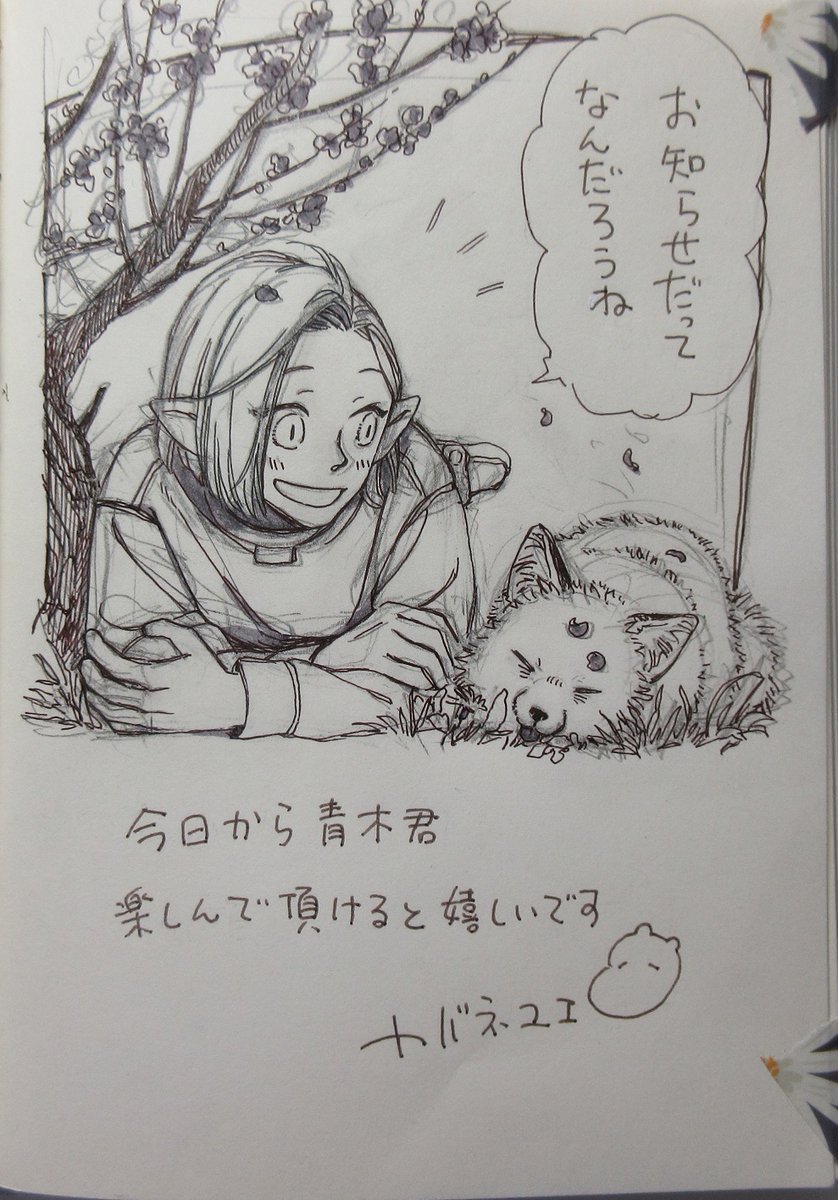 お知らせだって
なんだろうね
今日から青木君
楽しんで頂けると嬉しいです
カバネユエ